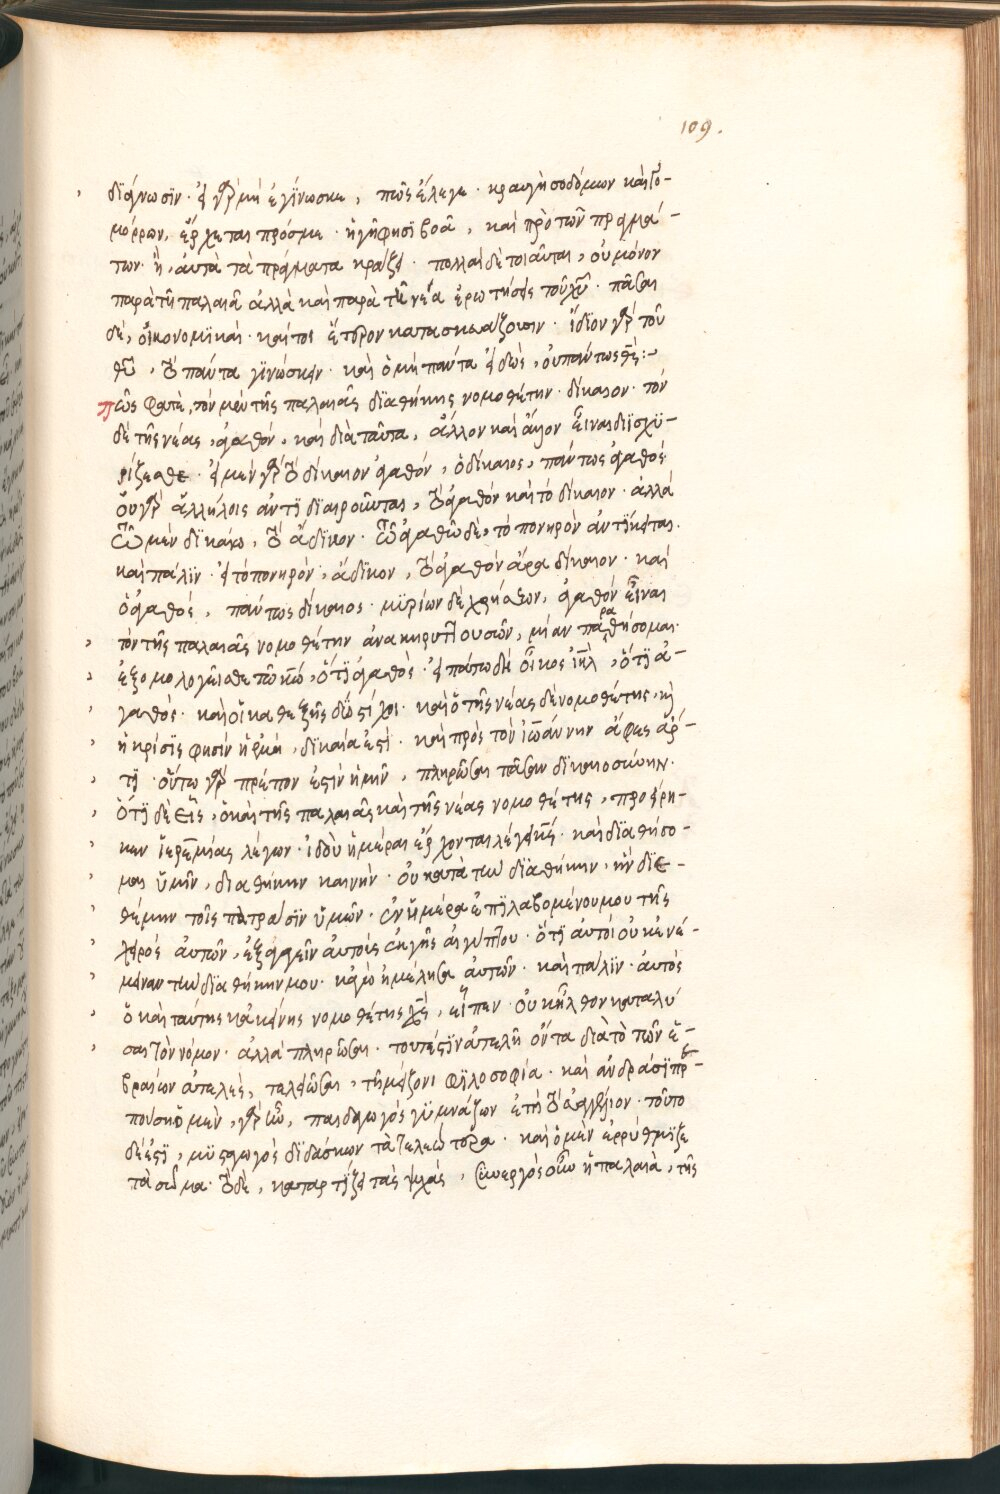 109.
διάγνωσϊν · εἰ γὰρ μὴ ἐγίνωσκε, πῶς ἔλεγε · κραυγὴ σοδόμων καὶ γο-
μόρρων, ἔρχεται πρός με · ἡ γῆ φησὶ βοᾶ, καὶ πρὸ τῶν πραγμά-
των · ἢ, αὐτὰ τὰ πράγματα κράζει · πολλαὶ δὲ τοιαῦται, οὐ μόνον
παρὰ τῆ παλαιᾶ ἀλλὰ καὶ παρὰ τῆ νέα ἐρωτήσεις τοῦ χῦ · πᾶσαι
δὲ, οἰκονομϊκαὶ · καίτοι ἕτερον κατασκευάζουσιν · ἴδϊον γὰρ τοῦ
θῦ, τὸ πάντα γϊνώσκειν · καὶ ὁ μὴ πάντα εἰδὼς, οὐ πάντως θς:-
πῶς φατὲ, τὸν μὲν τῆς παλαιᾶς δϊαθήκης νομοθέτην · δίκαιον · τὸν
δὲ τῆς νέας, ἀγαθόν, καὶ διὰ ταῦτα, ἄλλον καὶ ἄλλον εἶναι δϊϊσχϋ-
ρίζεσθε · εἰ μὲν γὰρ τὸ δίκαιον ἀγαθόν, ὁ δίκαιος, πάντως ἀγαθός·
οὐ γὰρ ἀλλήλοις ἀντϊδϊαιροῦνται, τὸ ἀγαθὸν καὶ τὸ δίκαιον · ἀλλὰ
τῶ μὲν δϊκαίω, τὸ ἄδϊκον · τῶ ἀγαθῶ δὲ, τὸ πονηρὸν ἀντϊκειται·
καὶ πάλϊν · εἰ τὸ πονηρὸν, ἄδϊκον, τὸ ἀγαθὸν ἄρα δίκαιον · καὶ
ὁ ἀγαθὸς, πάντως δίκαιος · μϋρίων δὲ χρήσεων, ἀγαθὸν εἶναι
τὸν τῆς παλαιᾶς νομοθέτην ἀνακηρυττουσῶν, μίαν παραθήσομαι·
ἐξομολογεῖσθε τῶ κῶ, ὅτϊ ἀγαθὸς · εἰπάτω δὴ οἶκος ἰηλ, ὅτϊ ἀ-
γαθὸς · καὶ οἱ καθεξῆς δύο στίχοι · καὶ ὁ τῆς νέας δὲ νομοθέτης, καὶ
ἡ κρίσϊς φησὶν ἡ ἐμὴ, δϊκαία ἐστὶ · καὶ πρὸς τὸν ἰωάννην ἄφες ἄρ-
τϊ · οὕτω γὰρ πρέπον ἐστὶν ἡμῖν, πληρῶσαι πᾶσαν δϊκαιοσύνην·
ὅτϊ δὲ εἷς, ὁ καὶ τῆς παλαιᾶς καὶ τῆς νέας νομοθέτης, προείρη-
κεν ἱερεμίας λέγων · ἰδοὺ ἡμέραι ἔρχονται λέγει κς · καὶ δϊαθήσο-
μαι ὑμῖν, διαθήκην καινὴν · οὐ κατὰ τὴν δϊαθήκην, ἣν δϊε-
θέμην τοῖς πατράσϊν ὑμῶν · ἐν ἡμέρα ἐπϊλαβομένου μου τῆς
χειρὸς αὐτῶν, ἐξαγαγεῖν αὐτοὺς ἐκ γῆς αἰγύπτου · ὅτϊ αὐτοὶ οὐκ ἐνέ-
μειναν τὴν δϊαθήκην μου · κἀγὼ ἠμέλησα αὐτῶν · καὶ πάλϊν · αὐτὸς
ὁ καὶ ταύτης κἀκείνης νομοθέτης χς, εἶπεν · οὐκ ἦλθον καταλύ
σαι τὸν νόμον · ἀλλὰ πληρῶσαι · τουτέστϊν ἀτελῆ ὄντα διὰ τὸ τῶν ἑ-
βραίων ἀτελὲς, τελειῶσαι, τῆ μείζονι φϊλοσοφία · καὶ ἀνδράσϊ πρε-
πούση · ὁ μὲν, γὰρ ὡς, παιδαγωγὸς γϋμνάζων ἐπὶ τὸ εὐαγγέλιον · τοῦτο
δέ ἐστϊ, μϋσταγωγὸς δϊδάσκων τὰ τελεώτερα · καὶ ὁ μὲν ἐρρύθμϊζε
τὰ σώμα · τὸ δὲ, καταρτϊζει τὰς ψχάς, συνεργὸς οὖν ἡ παλαιὰ, τῆς